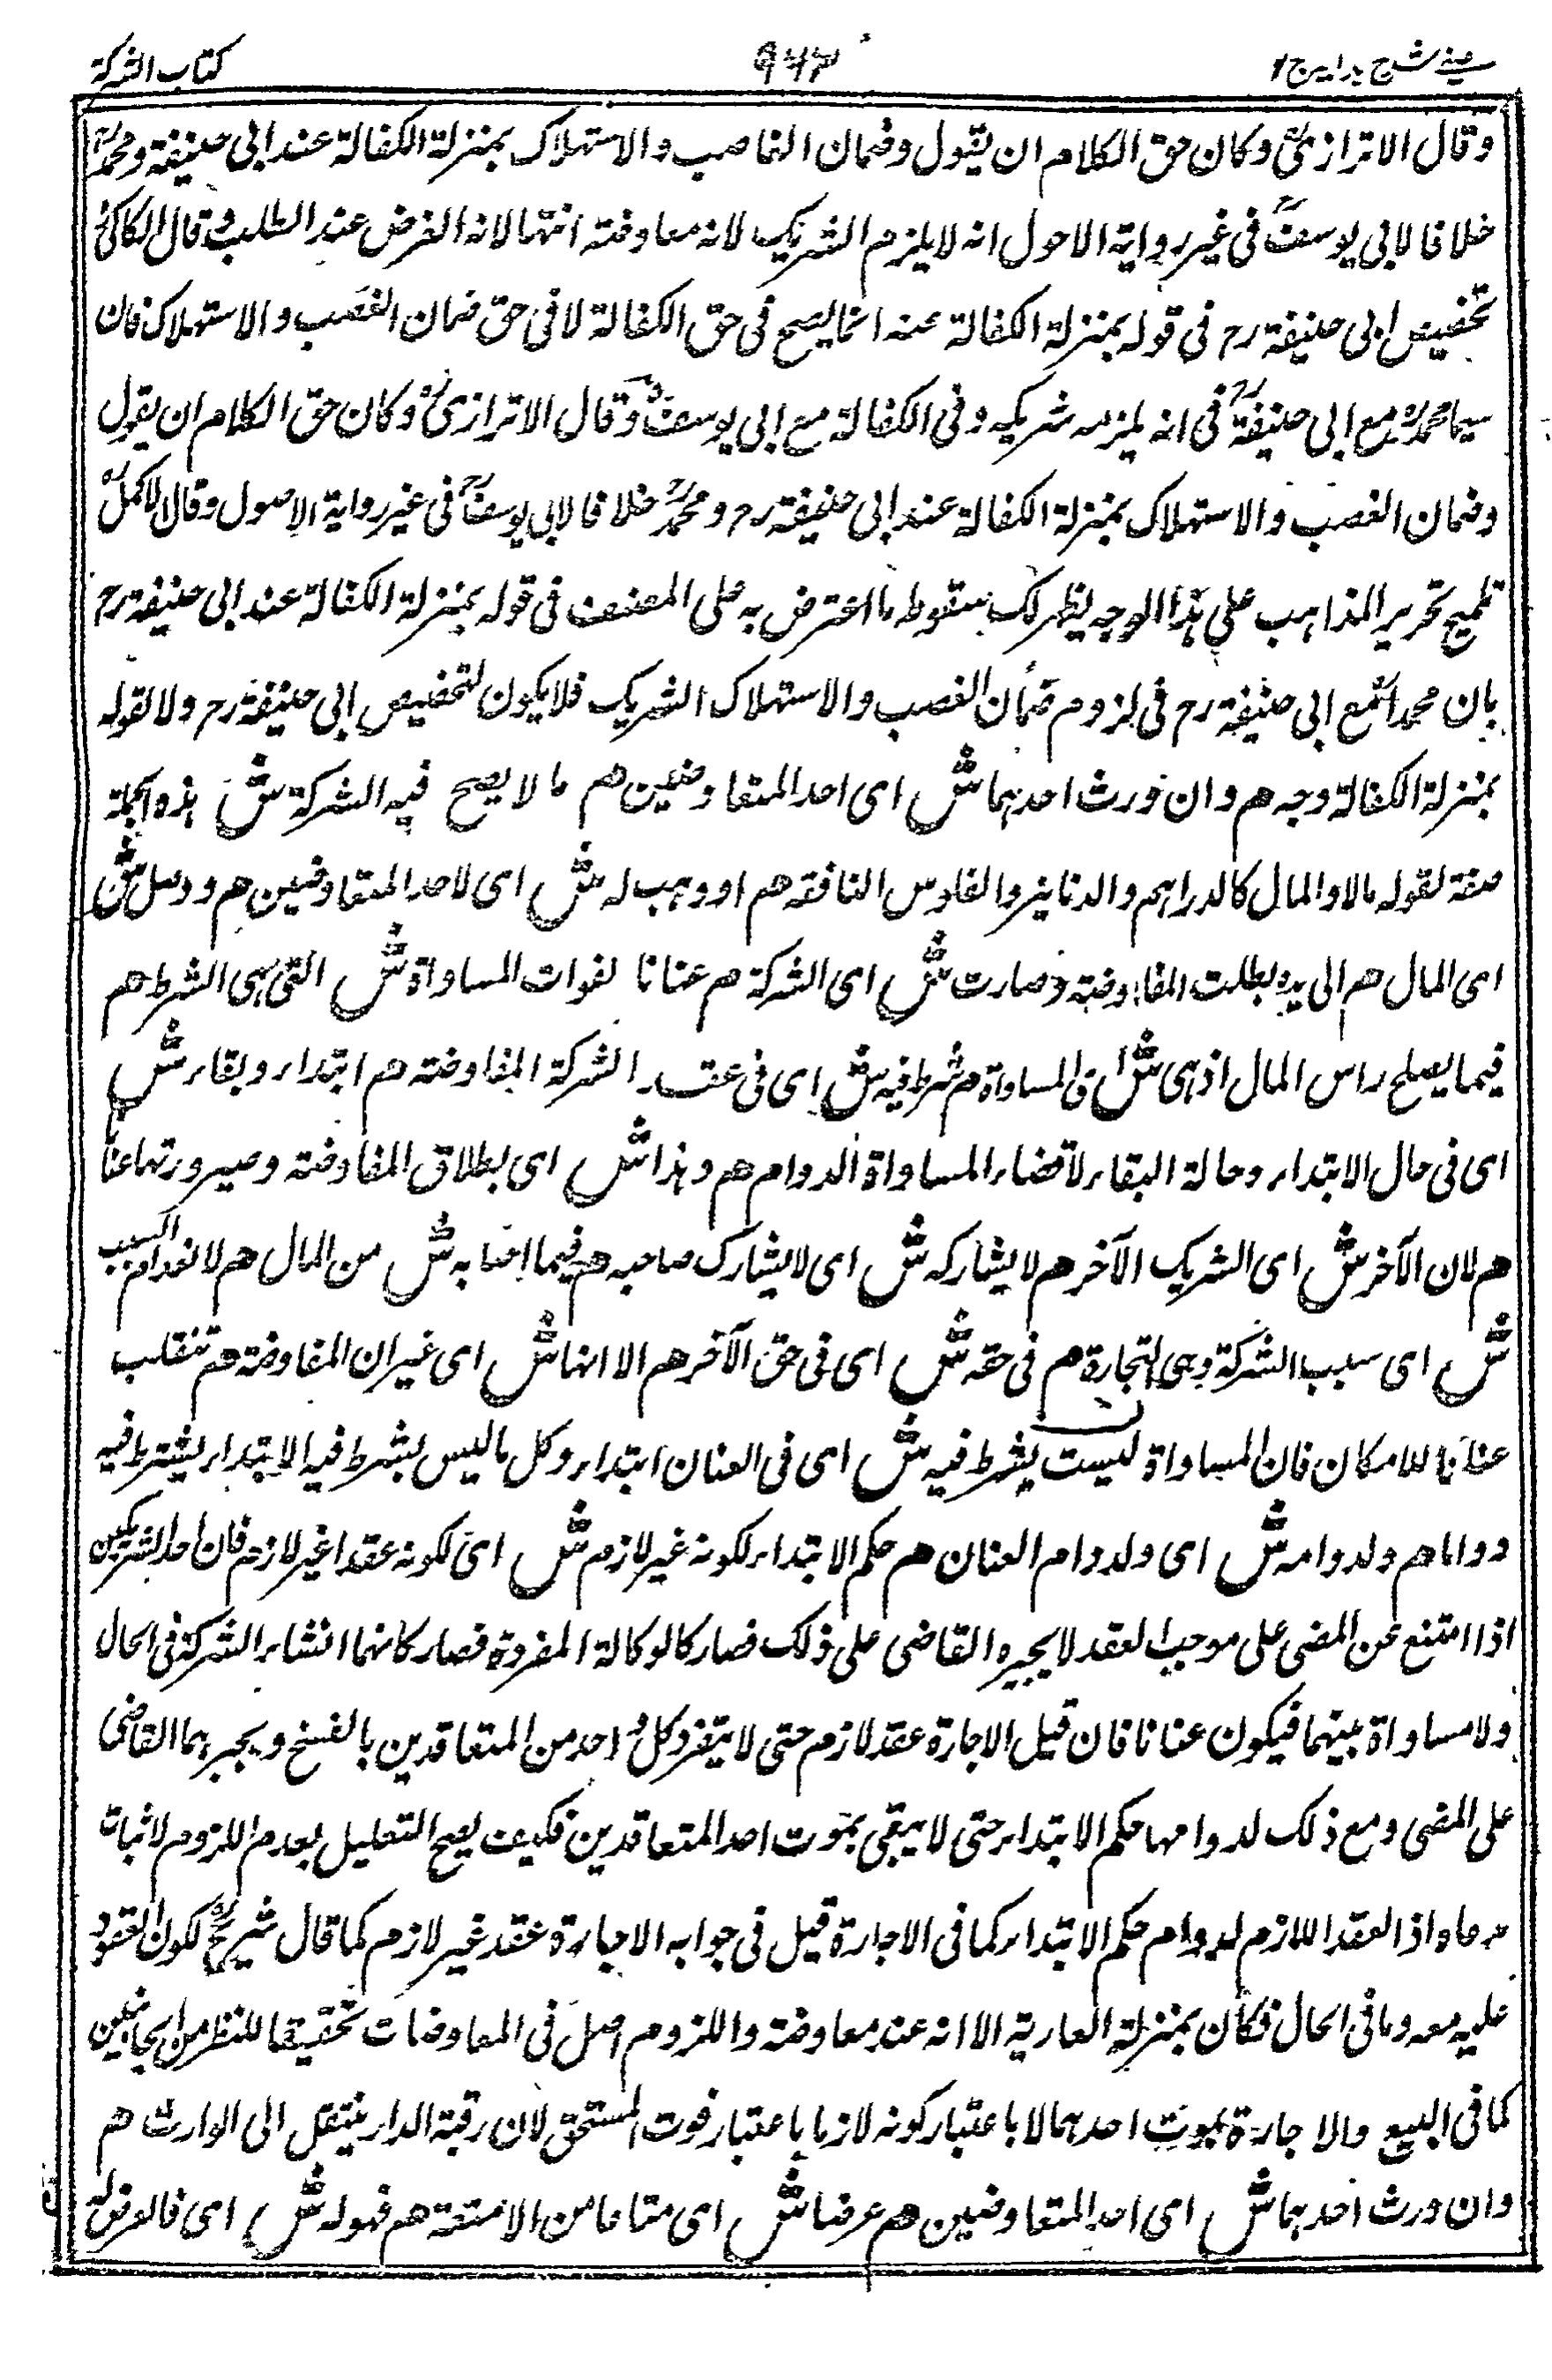 عینے شرح ہدایہ ج ۱ ۹۶۳ کتاب الشرکة
وقال الاترازیؒ وکان حق الکلام ان یقول وضمان الغاصب والاستہلاک بمنزلة الکفالة عند ابی حنیفة ومحمدؒ
خلافا لابی یوسفؒ فی غیر روایة الاحول انه لا یلزم الشریک لانه معاوضة انتہا لانه القرض عند الطلب وقال الکاکیؒ
تخصیص ابی حنیفة رح فی قوله بمنزلة الکفالة عنه انما یصح فی حق الکفالة لا فی حق ضمان الغصب والاستہلاک فان
سیما محمدؒ مع ابی حنیفةؒ فی انه یلزمه شریکه وفی الکفالة مع ابی یوسفؒ وقال الاترازیؒ وکان حق الکلام ان یقول
وضمان الغصب والاستہلاک بمنزلة الکفالة عند ابی حنیفة رح ومحمدؒ خلافا لابی یوسفؒ فی غیر روایة الاصول وقال الاکملؒ
تحریر المذاہب علی ہذا الوجه یظہر لک سقوط ما اعترض به علی المصنف فی قوله بمنزلة الکفالة عند ابی حنیفة رح
بان محمداؒ مع ابی حنیفة رح فی لزوم ضمان الغصب والاستہلاک الشریک فلا یکون لتخصیص ابی حنیفة رح ولا لقوله
بمنزلة الکفالة وجه هم وان ورث احدہما ش ای احد المتفاوضین هم ما لا یصح فیه الشرکة ش ہذه الجملة
صفة لقوله مالا والمال کالدراہم والدنانیر والفلوس النافقة هم او وہب له ش ای لاحد المتفاوضین هم ووصل ش
ای المال هم الی یده بطلت المفاوضة وصارت ش ای الشرکة هم عنانا لفوات المساواة ش التی ہی الشرط هم
فیما یصلح راس المال اذ ہی ش ای المساواة هم شرط فیه ش ای فی عقد الشرکة المفاوضة هم ابتداء وبقاء ش
ای فی حال الابتداء وحالة البقاء لاقتضاء المساواة الدوام هم وہذا ش ای بطلاق المفاوضة وصیرورتہا عنانا
هم لان الآخر ش ای الشریک الآخر هم لا یشارکه ش ای لا یشارک صاحبه هم فیما اصابه ش من المال هم لانعدام السبب
ش ای سبب الشرکة وہی التجارة هم فی حقه ش ای فی حق الآخر هم الا انہا ش ای غیر ان المفاوضة هم تنقلب
عنانا للامکان فان المساواة لیست بشرط فیه ش ای فی العنان ابتداء وکل ما لیس بشرط فیه الابتداء یشترط فیه
دواما هم ولدوامه ش ای ولدوام العنان هم حکم الابتداء لکونه غیر لازم ش ای لکونه عقدا غیر لازم فان احد الشریکین
اذا امتنع عن المضی علی موجب العقد لا یجبره القاضی علی ذلک فصار کالوکالة المفردة فصار کانہما انشاء الشرکة فی الحال
ولا مساواة بینہما فیکون عنانا فان قیل الاجارة عقد لازم حتی لا یتفرد کل واحد من المتعاقدین بالفسخ ویجبرہما القاضی
علی المضی ومع ذلک لدوامہا حکم الابتداء حتی لا یبقی بموت احد المتعاقدین فکیف یصح التعلیل بعدم اللزوم لاثبات
واذ العقد اللازم لدوام حکم الابتداء کما فی الاجارة قیل فی جوابه الاجارة عقد غیر لازم کما قال شریحؒ لکون العقود
علیه معدوما فی الحال فکان بمنزلة العاریة الا انه عند معاوضة واللزوم اصل فی المعاوضات تحقیقا للنظر من الجانبین
کما فی البیع والاجارة بموت احدہما لا باعتبار کونه لازما باعتبار فوت المستحق لان رقبة الدار ینتقل الی الوارث هم
وان ورث احدہما ش ای احد المتفاوضین هم عرضا ش ای متاعا من الامتعة هم فہو له ش ای فالعرض له